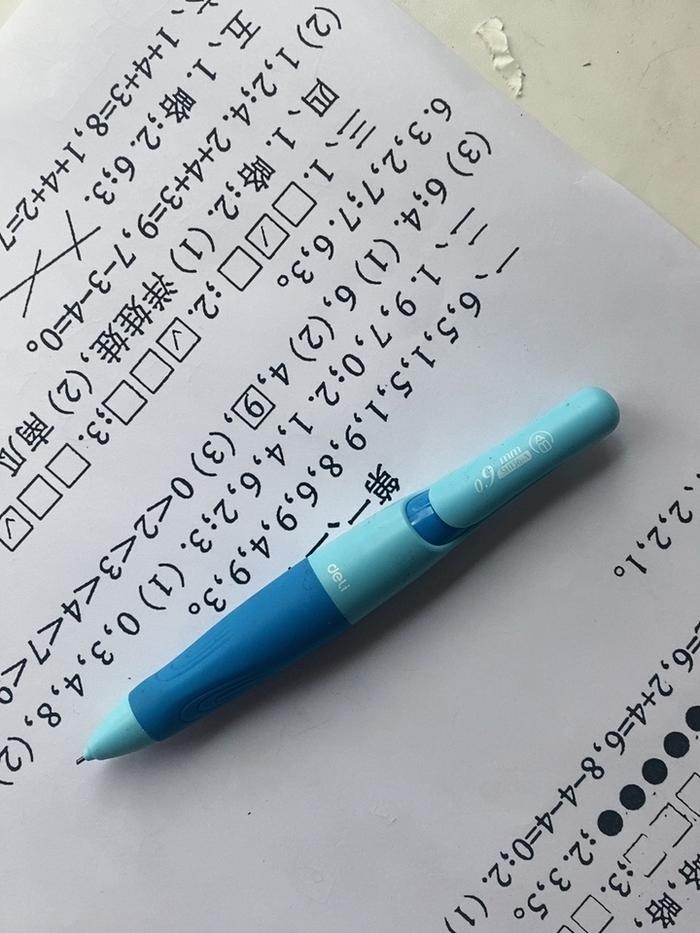 略,略,
;3.
;2. 3,5。
=6,2+4=6,8-4-4=0;2. (1)
,2,2,1。
第一
一、6,5,1,5,1,9,8,6,9,4,9,3。
二、1. 9,7,0;2. 1,4,6,2;3. (1) 0,3,4,8, (2)
(3) 6;4. (1) 6, (2) 4,9, (3) 0<2<3<4<7<9
6. 3,2,7;7. 6,3。
三、1. □☑□;2. ☑□□;3. □□☑
四、1. 略;2. (1) 洋娃娃, (2) 南瓜
(2) 1,2;4. 2+4+3=9, 7-3-4=0。
五、1. 略;2. 6;3.
1+4+3=8, 1+4+2=7
deli
0.9 mm